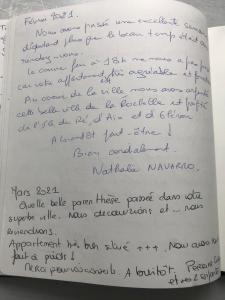 Février 2021.
Nous avons passé une excellente semaine
d'autant plus que le beau temps était au
rendez-vous.
Le couvre feu à 18h ne nous a pas
car votre appartement est agréable et
Au coeur de la ville nous avons
cette belle ville de La Rochelle et profité
de l'île de Ré, d'Aix et d'Oléron
A bientôt peut-être !
Bien cordialement.
Nathalie NAVARRO.
Mars 2021
Quelle belle parenthèse passée dans votre
superbe ville. Nous découvrions et ... nous
reviendrons.
Appartement très bien situé +++. Nous avons
tout à pieds !
Merci pour vos conseils. A bientôt.
et ses 2 enfants